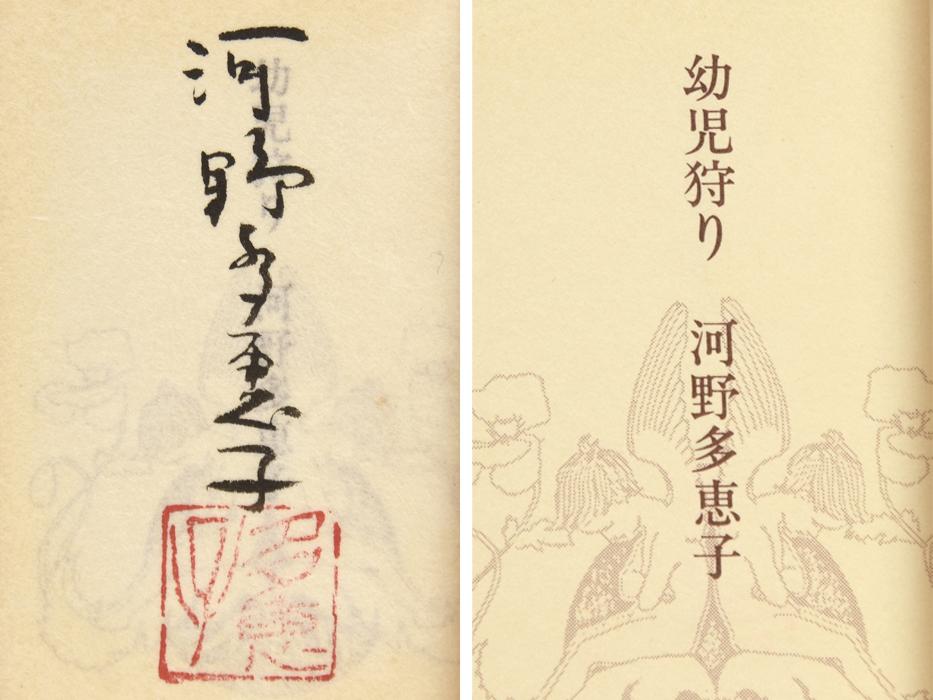 河野多惠子
幼児狩り
河野多恵子